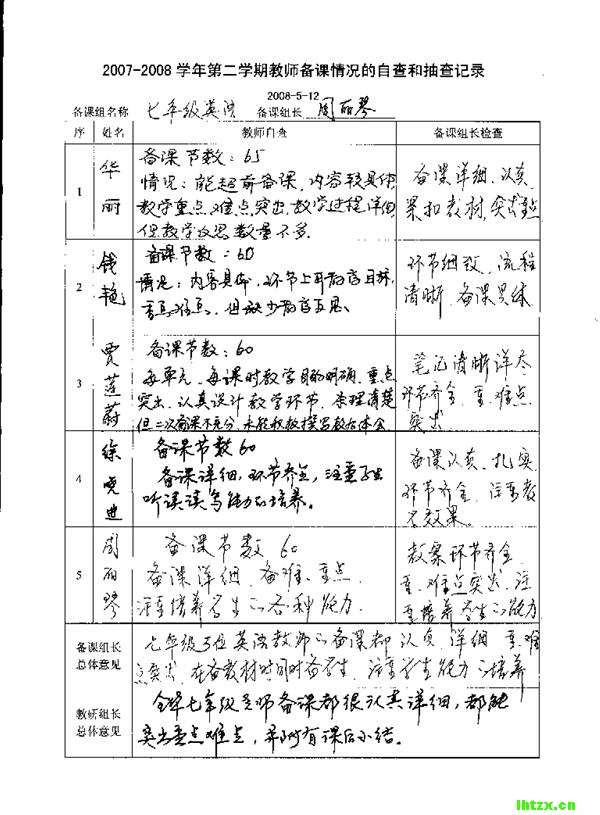 2007-2008 学年第二学期教师备课情况的自查和抽查记录
2008-5-12
备课组名称 七年级英语 备课组长 周丽琴
序 姓名 教师自查 备课组长检查
1 华丽
备课节数：65
情况：能超前备课，内容较具体
教学重点、难点突出，教学过程详细
但教学反思数量不多
备课详细、认真
紧扣教材，突出重点
2 钱艳
备课节数：60
情况：内容具体，环节上有教学目标，
重点难点，但缺少教后反思
环节细致、流程
清晰、备课具体
3 贾莲蔚
备课节数：60
每单元、每课时教学目的明确、重点
突出、认真设计教学环节，条理清楚
但二次备课不充分，未能积极撰写教后体会
笔记清晰详尽
环节齐全、重、难点
突出
4 徐晓进
备课节数 60
备课详细，环节齐全，注重学生
听说读写能力的培养。
备课认真、扎实
环节齐全，注重教
学效果。
5 周丽琴
备课节数 60
备课详细、备难、重点
注重培养学生的各种能力
教案环节齐全
重、难点突出、注
重培养学生的能力
备课组长
总体意见
七年级5位英语教师的备课都认真、详细 重难
点突出，在备教材时同时备学生，注重学生能力的培养
教研组长
总体意见
全体七年级老师备课都很认真详细，都能
突出重点难点，并附有课后小结。
lhtzx.cn